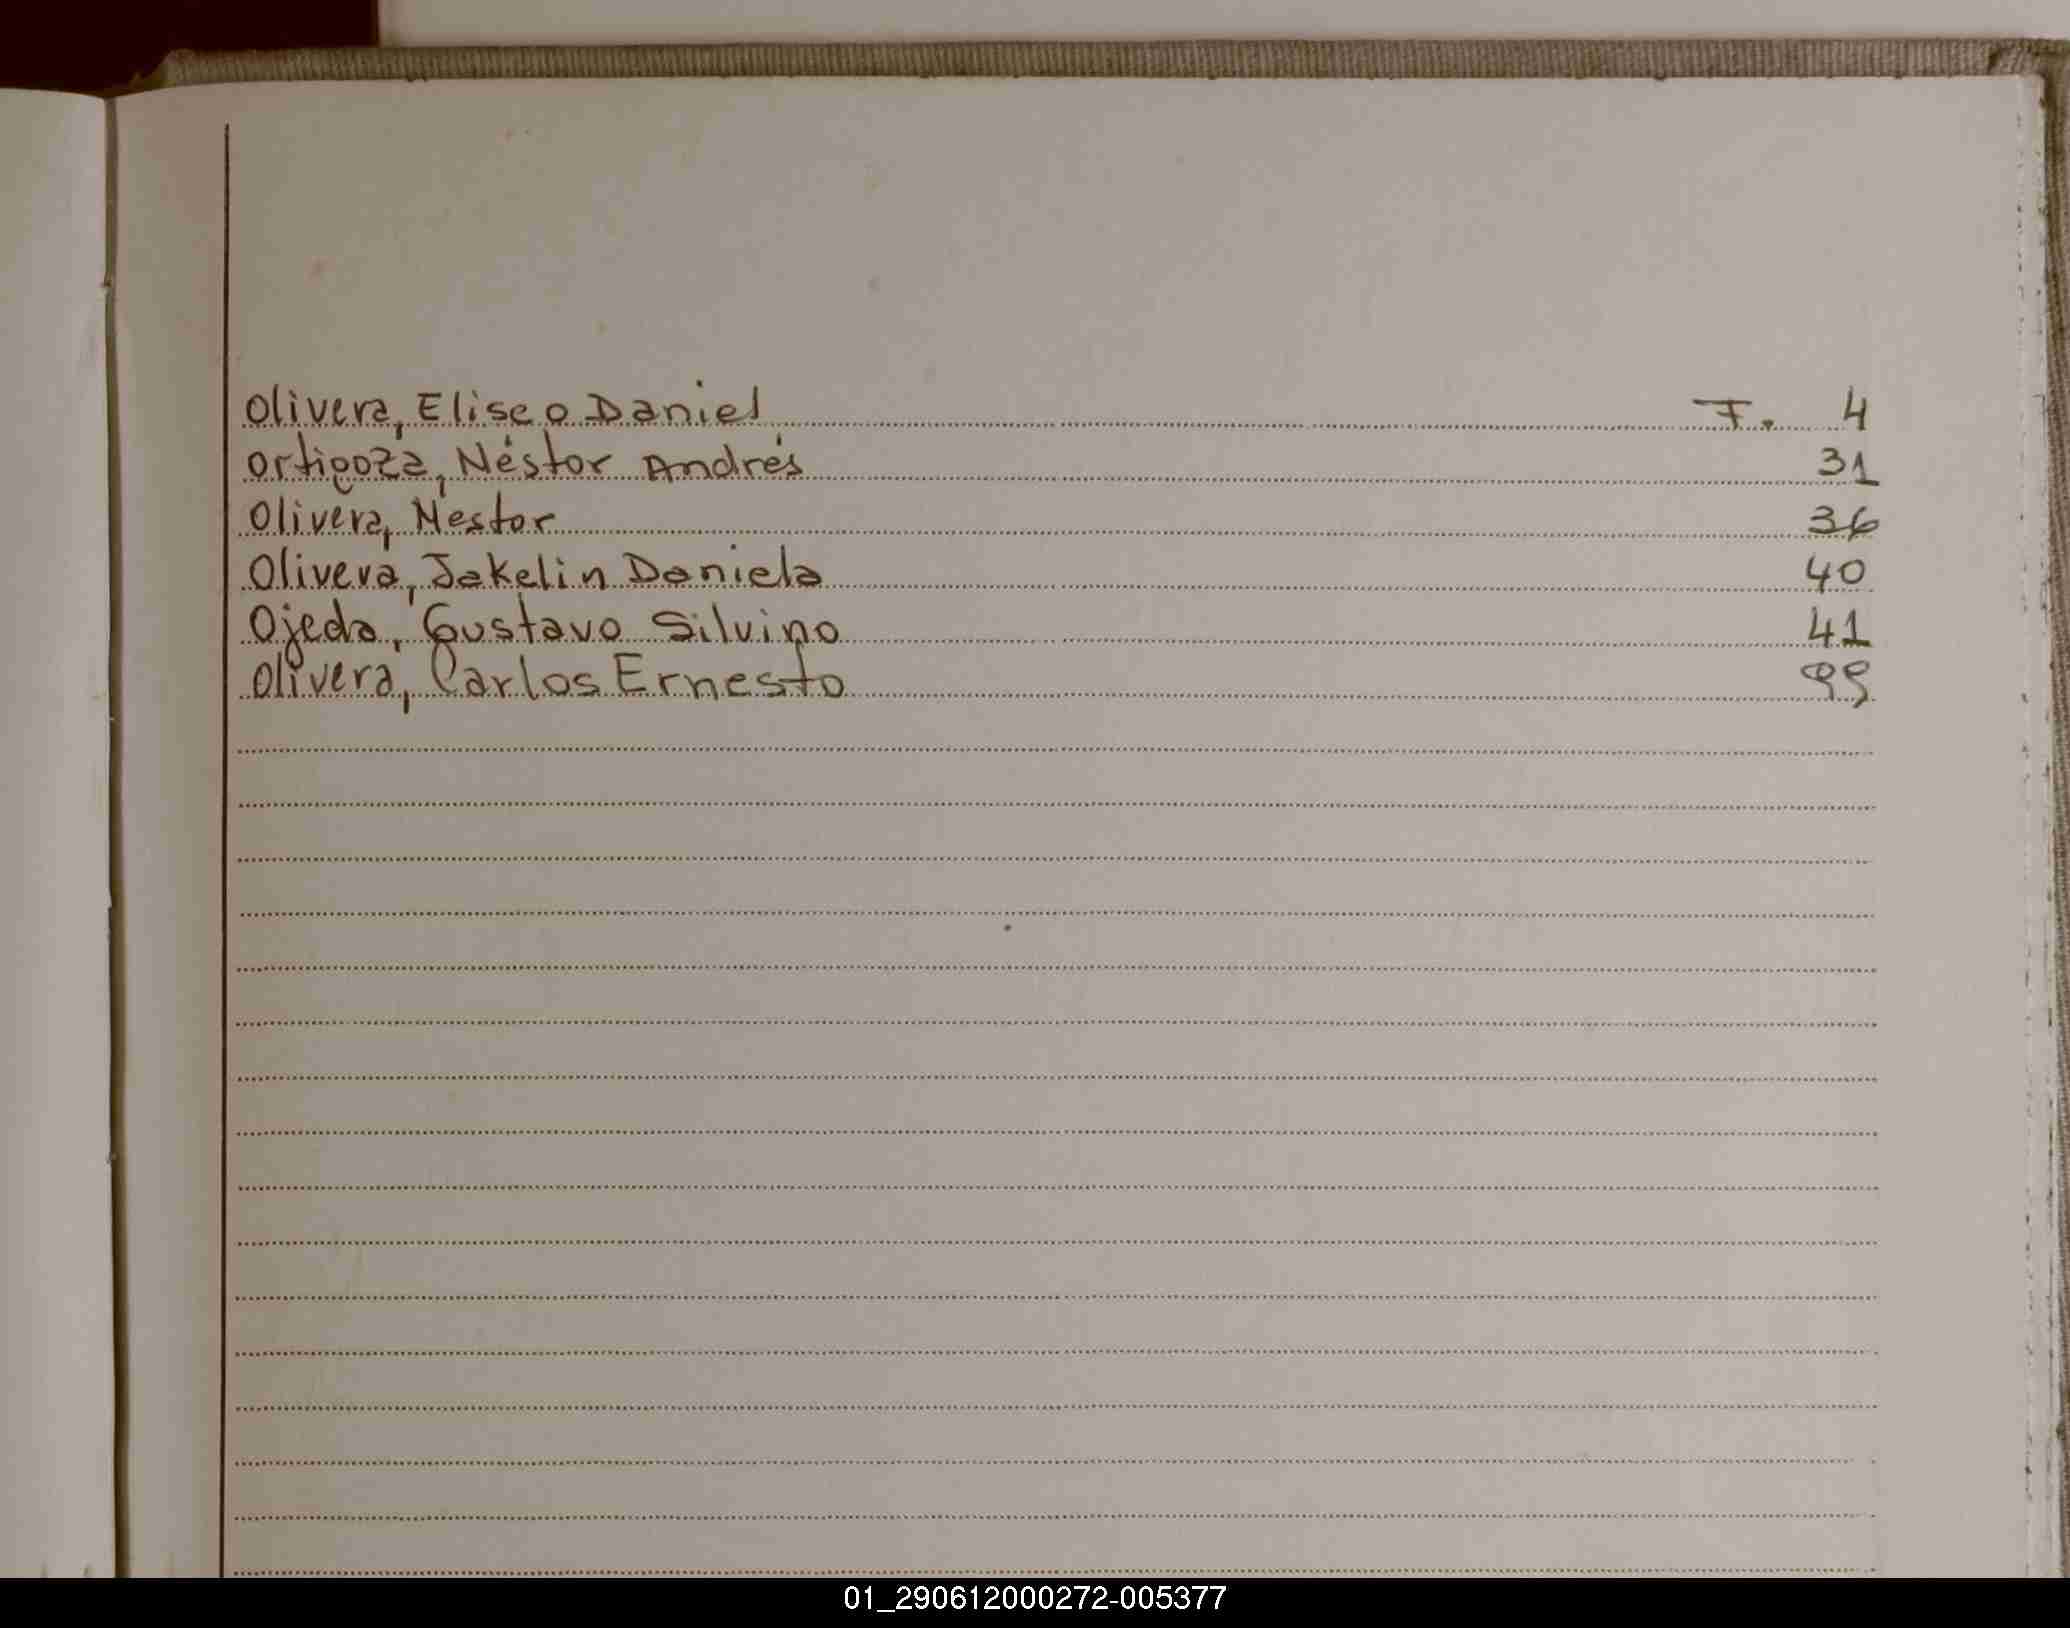 Olivera, Eliseo Daniel F. 4
Ortigoza, Néstor Andrés 31
Olivera, Nestor 36
Olivera, Jakelin Daniela 40
Ojeda, Gustavo Silvino 41
Olivera, Carlos Ernesto 99
01_290612000272-005377